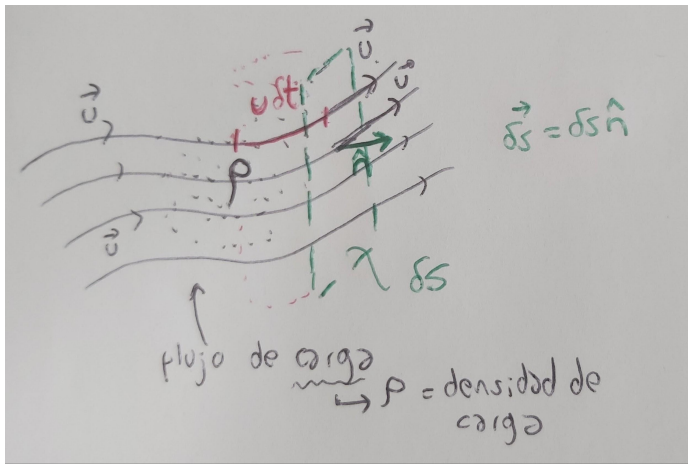 u⃗
uδt
u⃗
u⃗
ρ
n̂
δs⃗ = δs n̂
u⃗
δs
flujo de carga
ρ = densidad de
carga